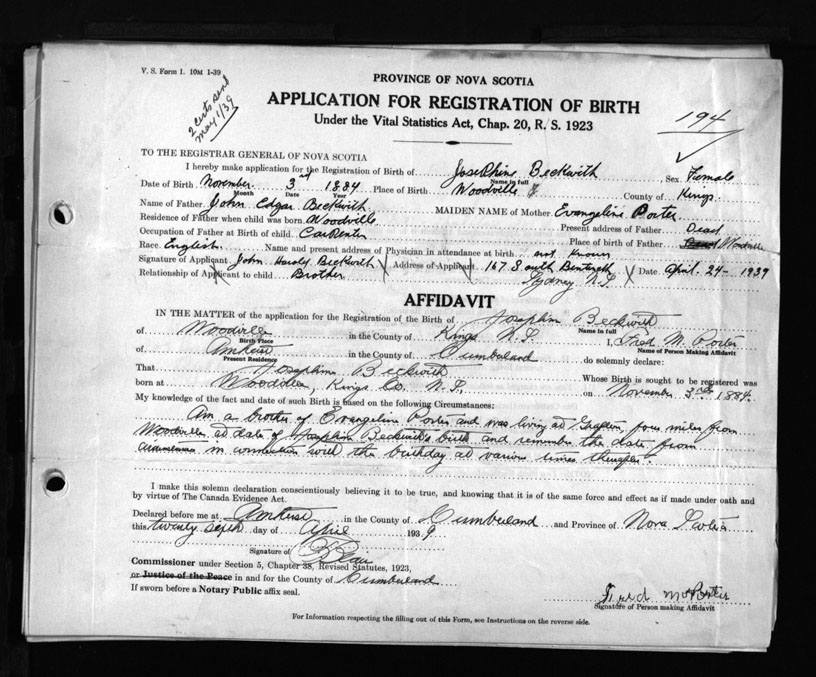 V. S. Form 1. 10M 1-39
2 certs send
May 1/39
PROVINCE OF NOVA SCOTIA
APPLICATION FOR REGISTRATION OF BIRTH
Under the Vital Statistics Act, Chap. 20, R. S. 1923
194
TO THE REGISTRAR GENERAL OF NOVA SCOTIA
I hereby make application for the Registration of Birth of Josephine Beckwith Sex Female
Name in full
Date of Birth November 3rd 1884 Place of Birth Woodville County of Kings
Month Date Year
Name of Father John Edgar Beckwith MAIDEN NAME of Mother Evangeline Porter
Residence of Father when child was born Woodville Present address of Father Dead
Occupation of Father at Birth of child Carpenter Place of birth of Father Woodville
Race English Name and present address of Physician in attendance at birth not Known
Signature of Applicant John Harold Beckwith Address of Applicant 167 South Bentinck Date April 24 - 1939
Relationship of Applicant to child Brother Sydney N.S.
AFFIDAVIT
IN THE MATTER of the application for the Registration of the Birth of Josephine Beckwith
Name in full
of Woodville in the County of Kings N.S. I, Fred M. Porter
Birth Place Name of Person Making Affidavit
of Amherst in the County of Cumberland do solemnly declare:
Present Residence
That Josephine Beckwith Whose Birth is sought to be registered was
born at Woodville, Kings Co. N.S., on November 3rd 1884.
My knowledge of the fact and date of such Birth is based on the following Circumstances:
Am a brother of Evangeline Porter and was living at Grafton, four miles from
Woodville at date of Josephine Beckwith's birth and remember the date from
in connection with the birthday at various times thereafter.
I make this solemn declaration conscientiously believing it to be true, and knowing that it is of the same force and effect as if made under oath and
by virtue of The Canada Evidence Act.
Declared before me at Amherst in the County of Cumberland and Province of Nova Scotia
this twenty sixth day of April 1939
Signature of
Commissioner under Section 5, Chapter 38, Revised Statutes, 1923,
or Justice of the Peace in and for the County of Cumberland
If sworn before a Notary Public affix seal.
Fred M Porter
Signature of Person making Affidavit
For Information respecting the filling out of this Form, see Instructions on the reverse side.